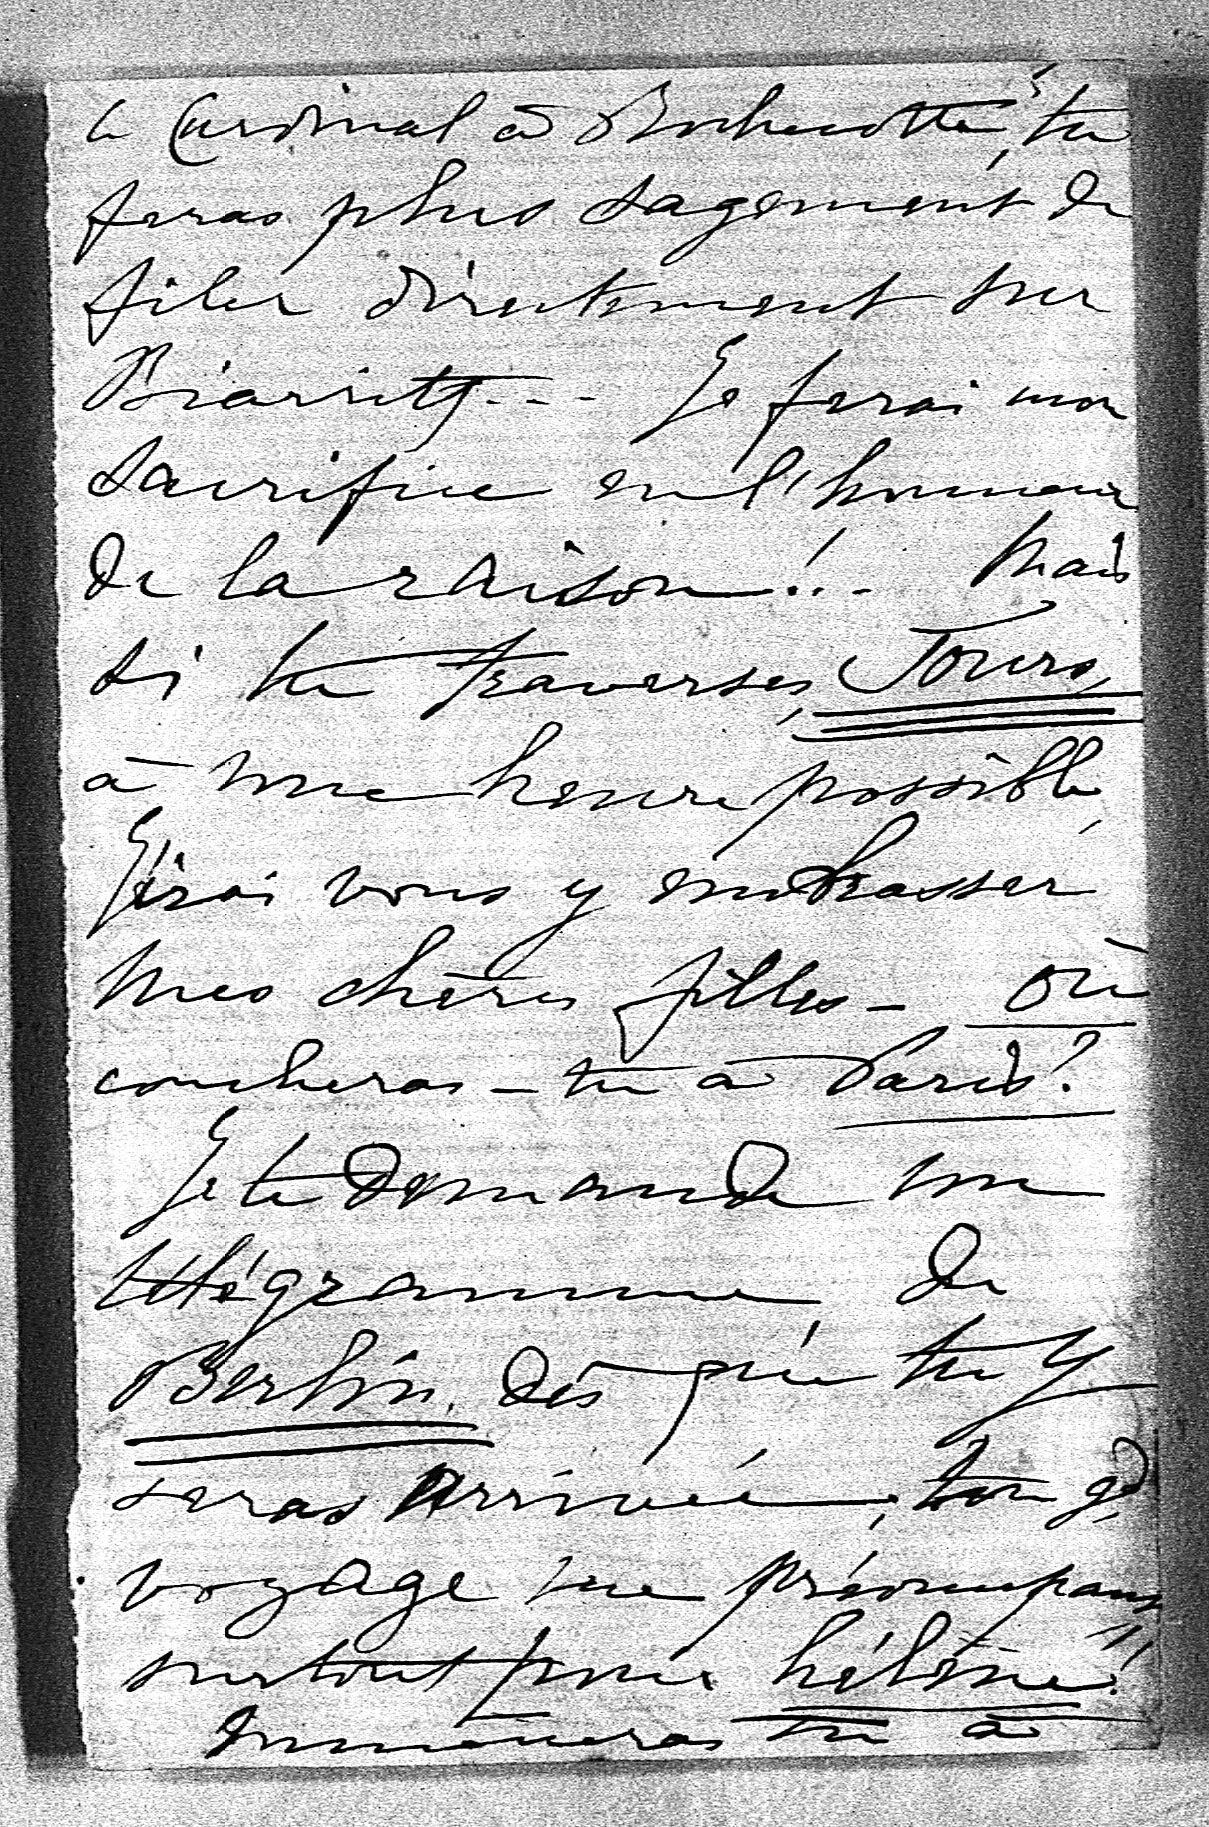 le Cardinal à Rochecotte, tu
feras plus sagement de
filer directement sur
Biarritz... Je ferai mon
sacrifice en l'honneur
de la raison!.. Mais
si tu traverses, Tours,
à une heure possible,
j'irai vous y embrasser
mes chères filles — où
coucheras-tu à Paris?
Je te demande un
télégramme de
Berlin, dès que tu y
seras arrivée, ton gd
voyage me préoccupant
surtout pour hélène!
Emmèneras tu à